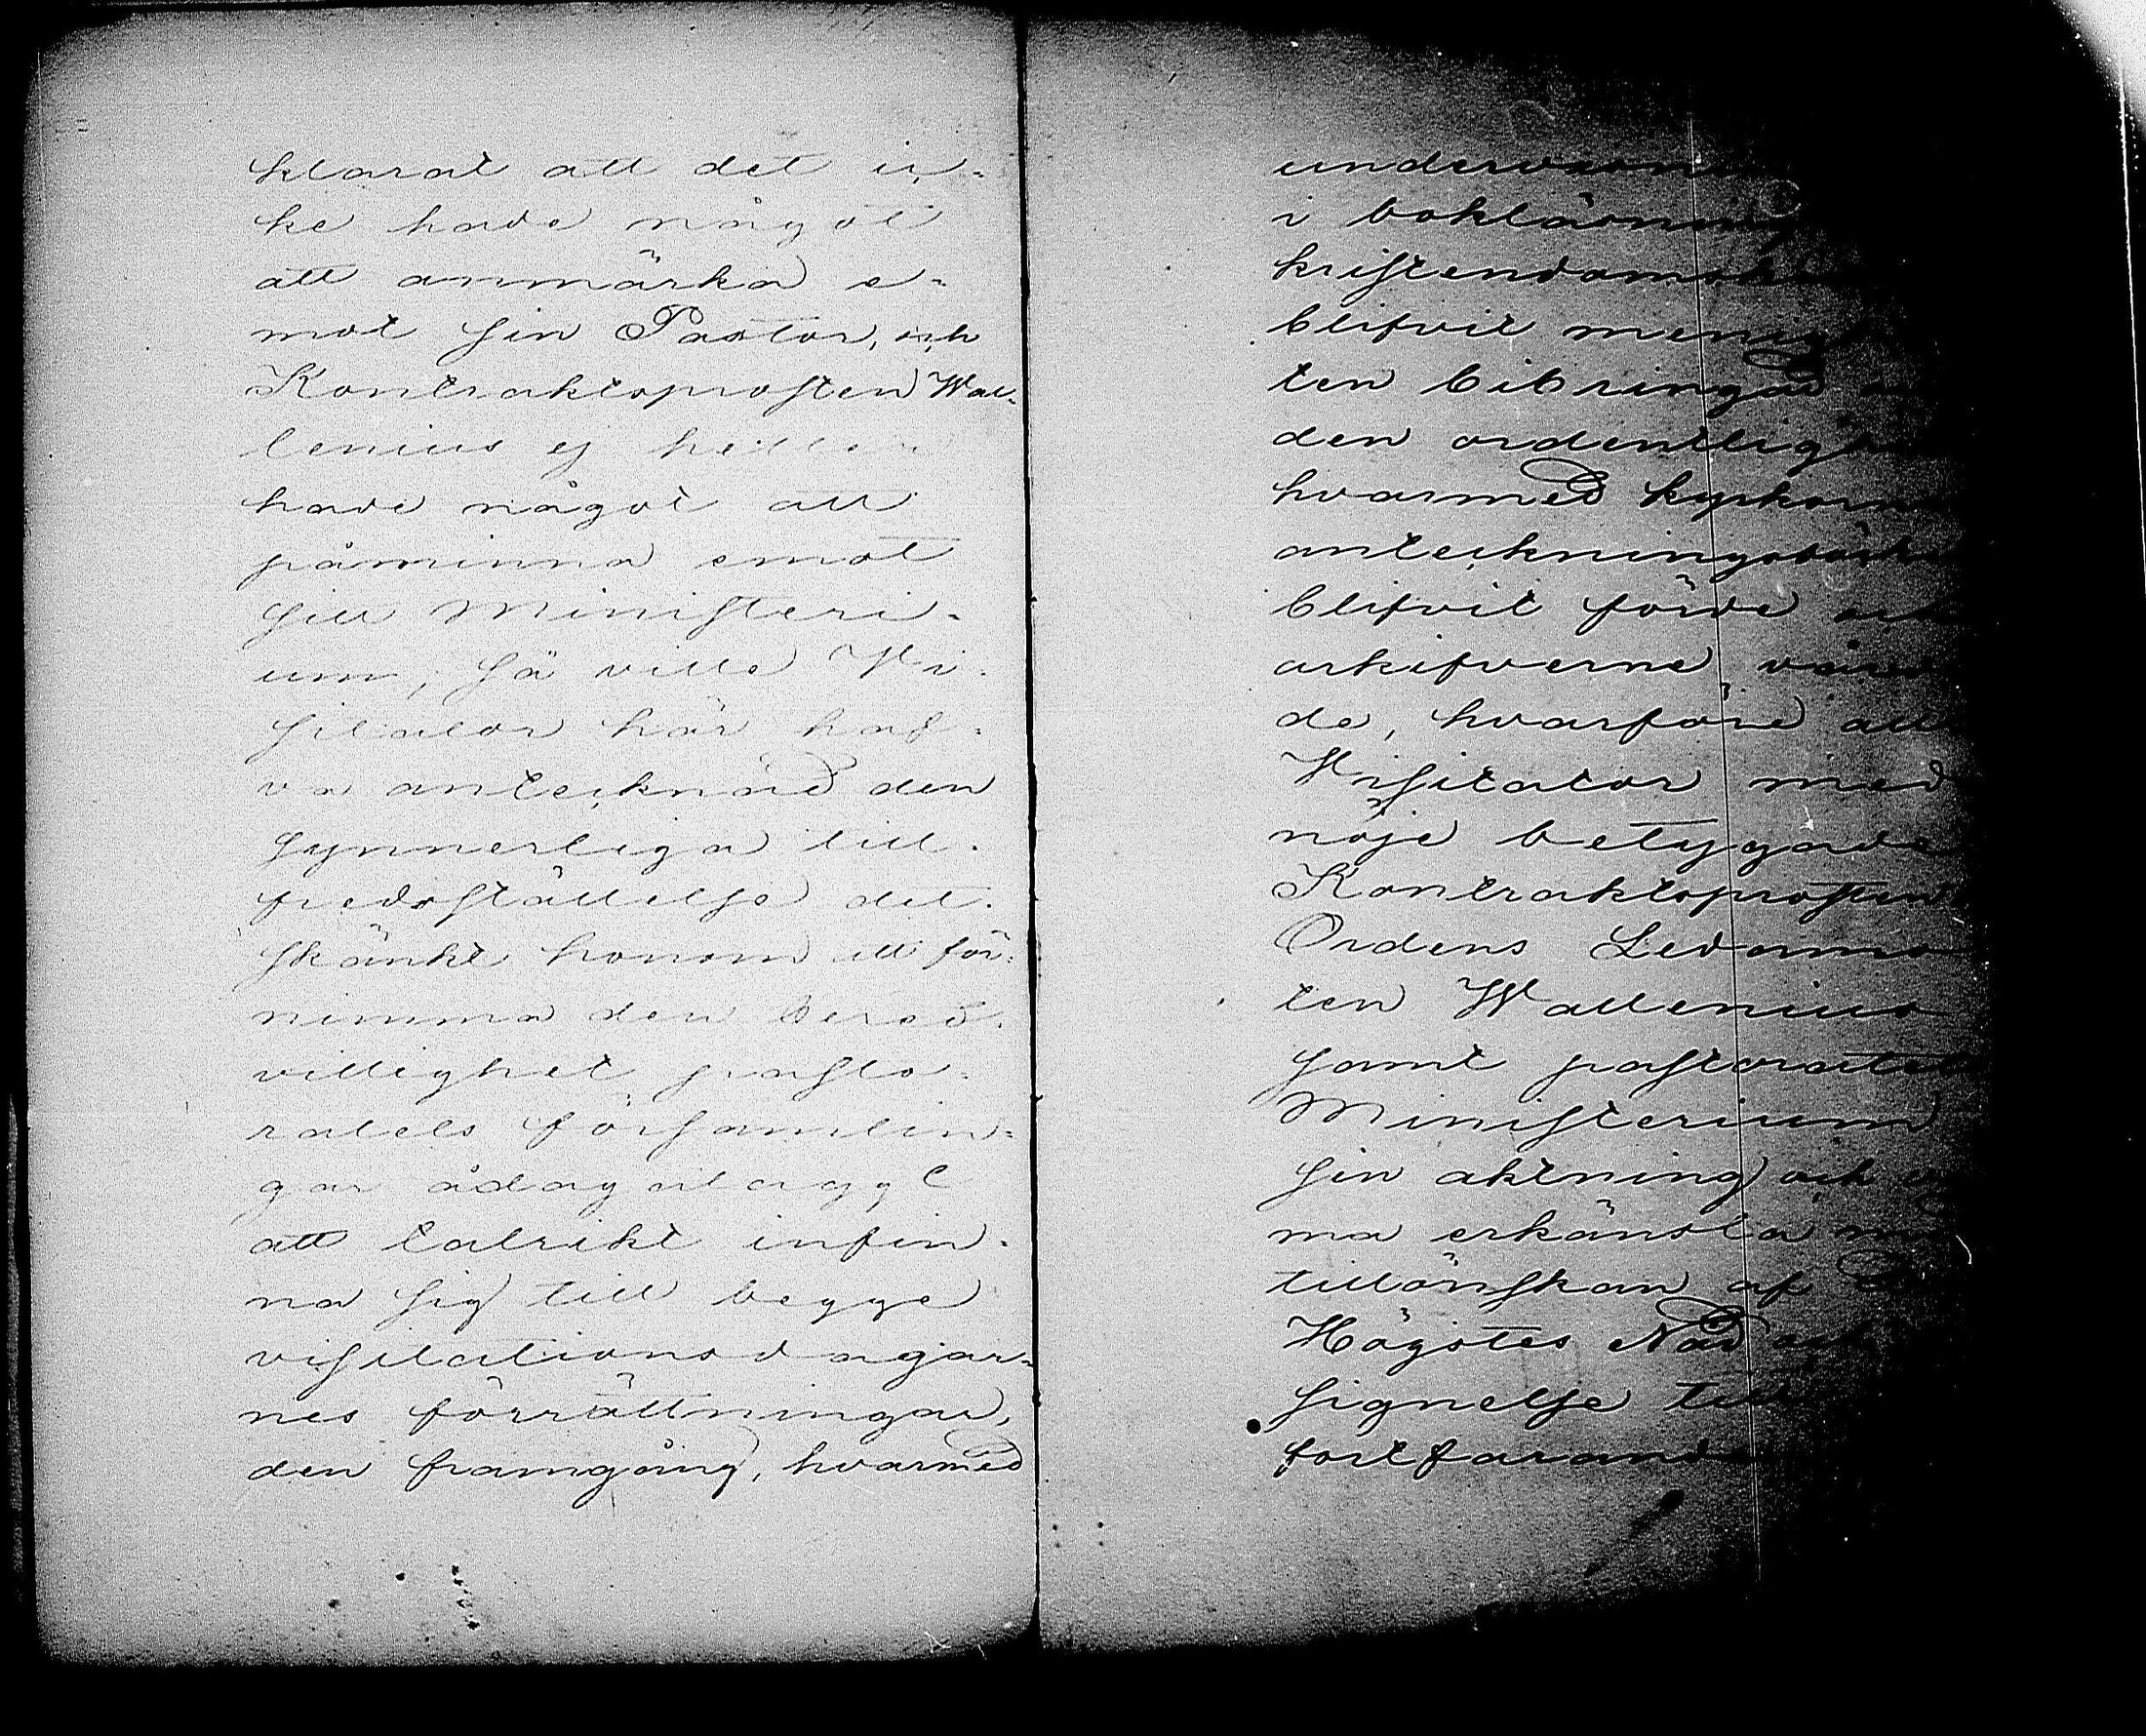 klarat att det ic-
ke hade något
att anmärka e-
mot sin Pastor, och
Kontraktsprosten Wal-
lenius ej heller
hade något att
påminna emot
sitt Ministeri-
um, så ville Vi-
sitator här haf-
va antecknad den
synnerliga till-
fredsställelse det
skänkt honom att för-
nimma den bered-
villighet pasto-
ratets församlin-
gar ådagalaggt
att talrikt infin-
na sig till begge
visitationsdagar-
nes förrättningar,
den framgång, hvarmed
i bokläsning
blifvit
ten bibringad
den
hvarmed
blifvit förde och
arkifverne
de, hvarföre
Visitator med
nöje betygade
Kontraktsprosten
Ordens Ledamo
ten Wallenius
samt pastoratets
Ministerium
sin aktning och
ma erkänsla
tillönskan af
Högstes Nåd och
signelse till
fortfarande